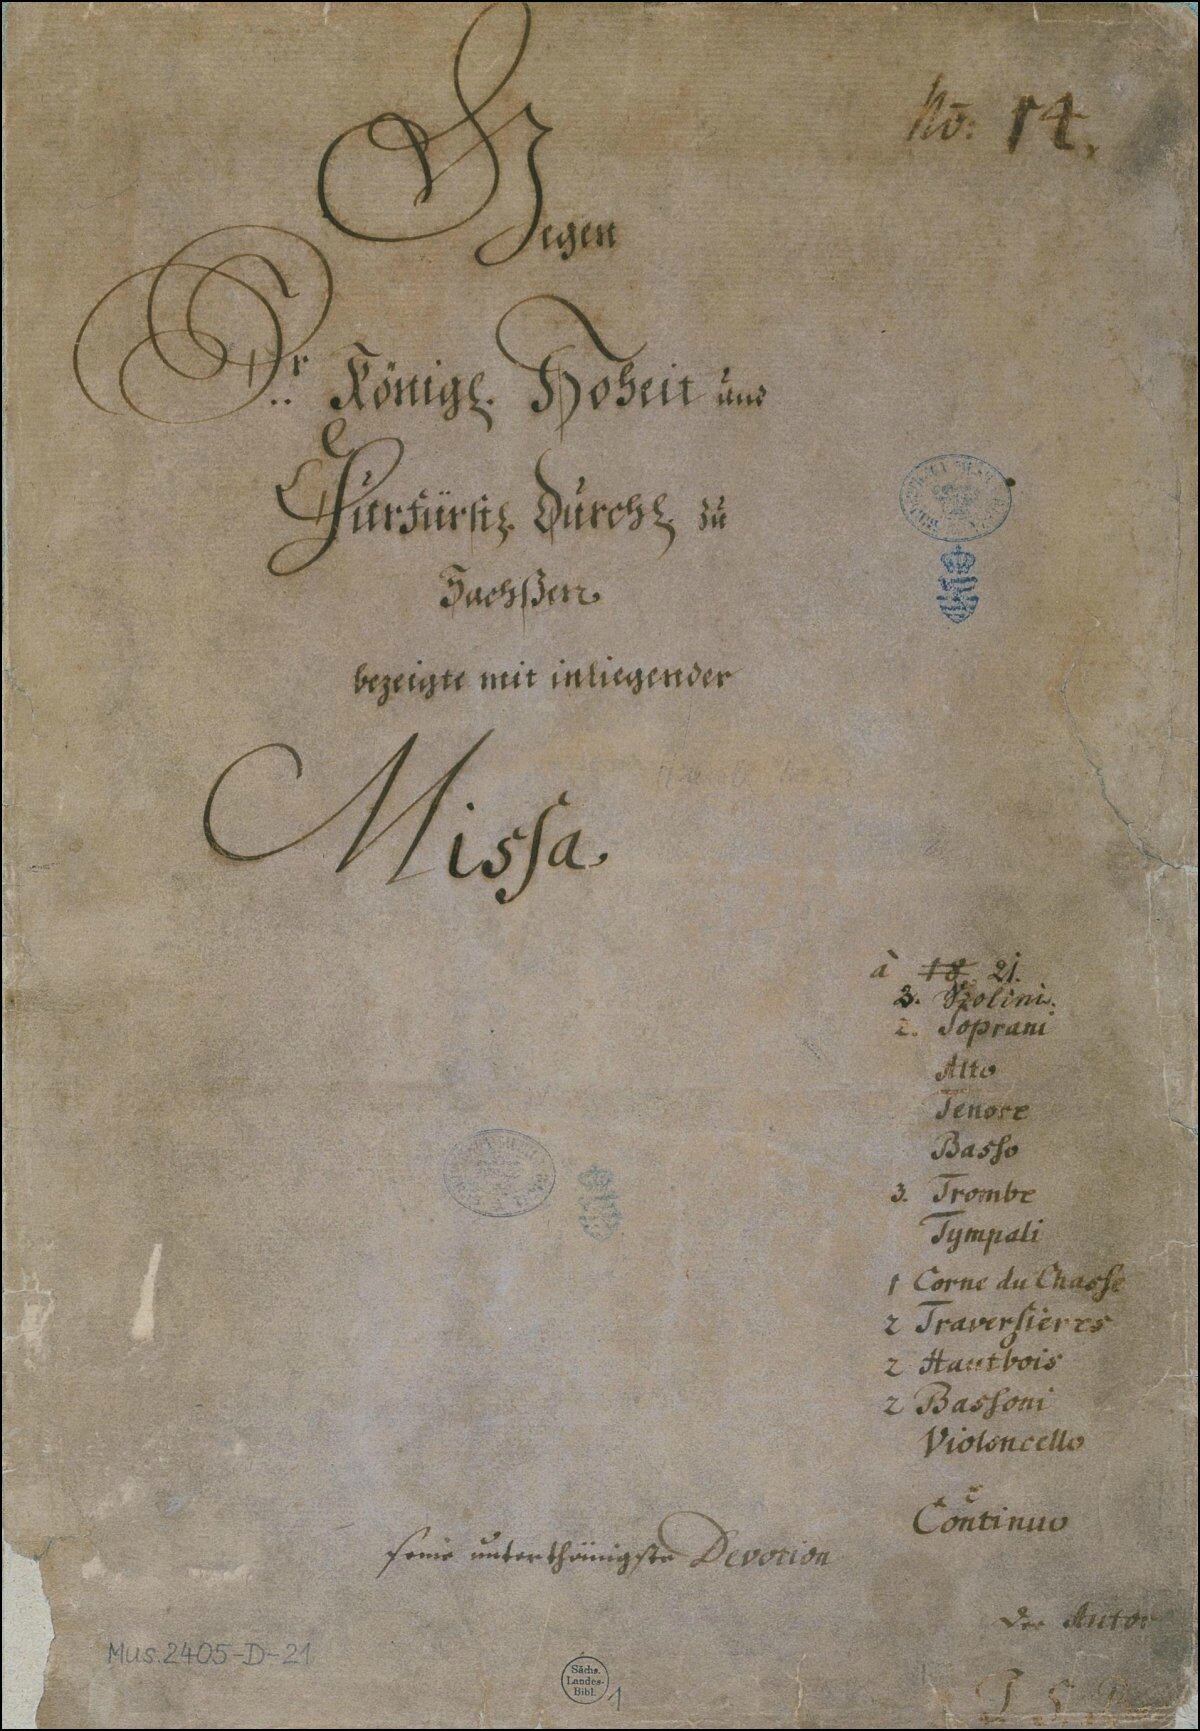 No: 14.
Gegen
Sr.. Königl. Hoheit und
Churfürstl. Durchl. zu
Sachßen
bezeigte mit inliegender
Missa.
à 18. 21.
3. Violini.
2. Soprani
Alto
Tenore
Basso
3. Trombe
Tympali
1 Corne du Chasse
2 Traversieres
2 Hautbois
2 Bassoni
Violoncello
e
Continuo
seine unterthänigste Devotion
der Autor
J S
Mus. 2405-D-21
Sächs.
Landes-
Bibl.
1